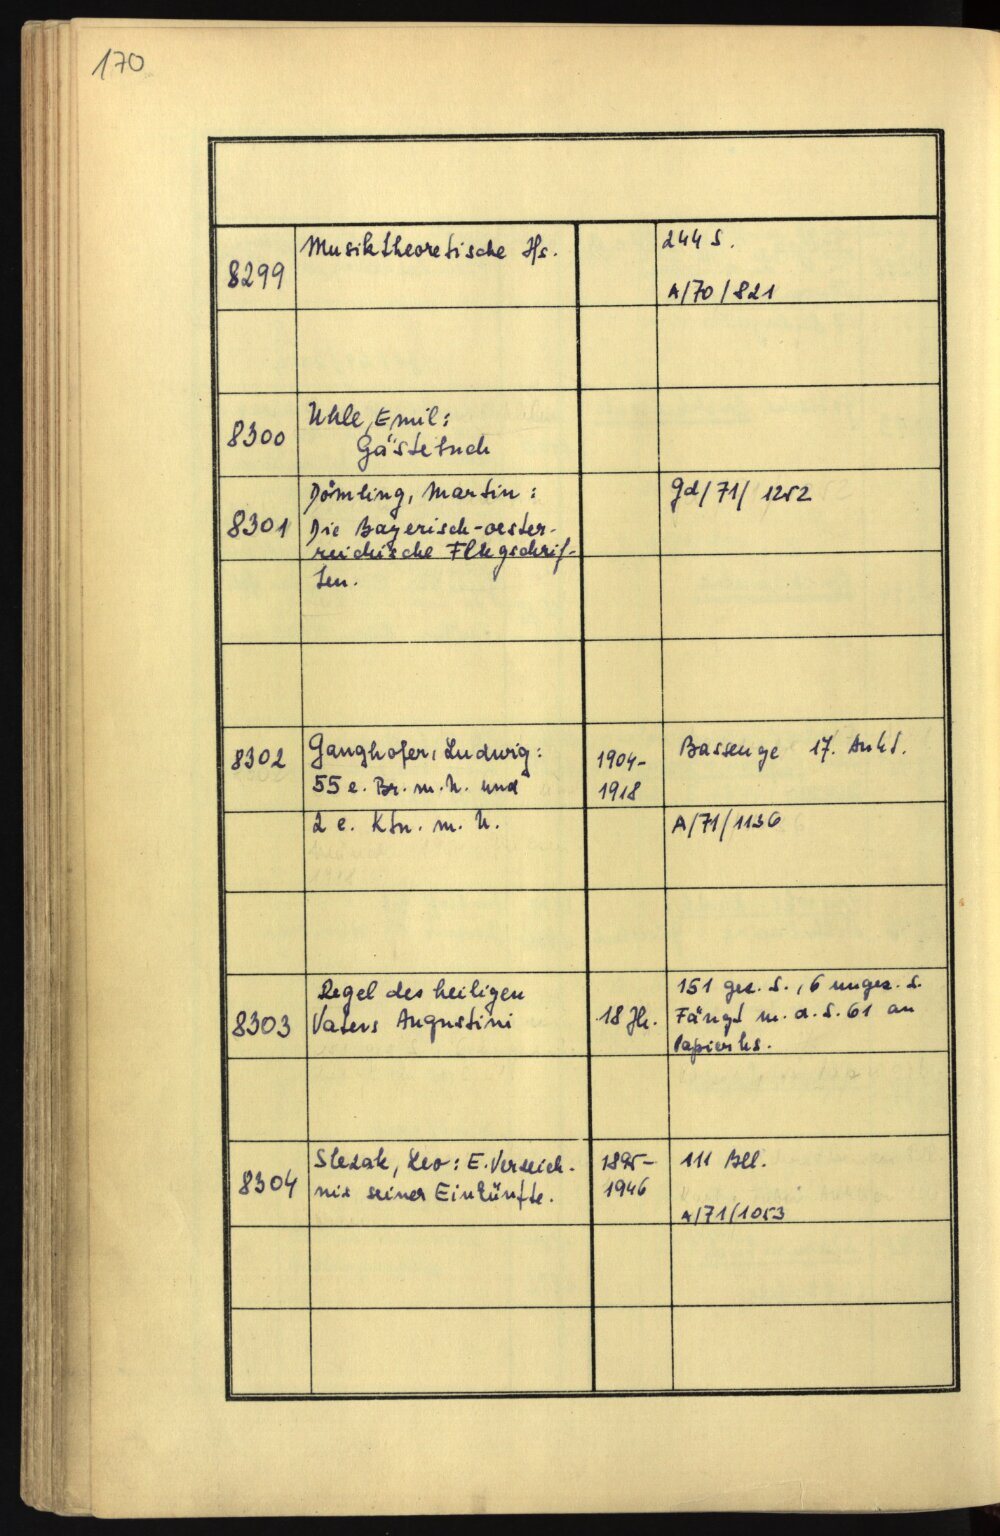 170
Musiktheoretische Hs.
244 S.
8299
A/70/821
Uhle, Emil:
8300
Gästebuch
Dömling, Martin:
Gd/71/1252
8301
Die Bayerisch-oester-
reichische Flugschrif-
ten.
8302
Ganghofer, Ludwig:
1904-
Bassenge 17. Aukt.
55 e. Br. m. U. und
1918
2 e. Ktn. m. U.
A/71/1136
Regel des heiligen
151 gez. S., 6 ungez. S.
8303
Vaters Augustini
18 Jh.
Fängt m. d. S. 61 an
Papierhs.
Slezak, Leo: E. Verzeich-
1895-
111 Bll.
8304
nis seiner Einkünfte.
1946
A/71/1053